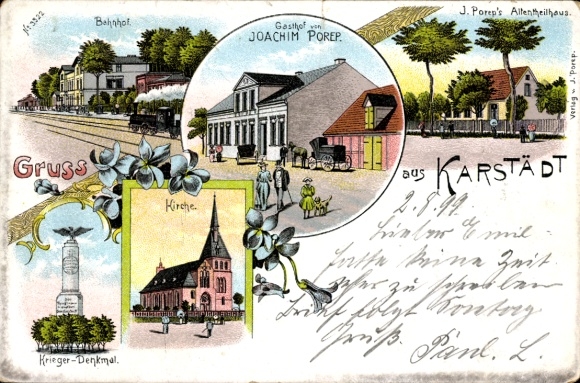 No 3822
Bahnhof.
Gasthof von
JOACHIM POREP.
J. Porep's Altentheilhaus.
Verlag v. J. Porep.
Gruss
aus KARSTÄDT
Kirche.
Krieger-Denkmal.
2.8.99.
Lieber Emil-
hatte keine Zeit
zu schreiben
Brief folgt Sonntag
Gruß. Paul. L.